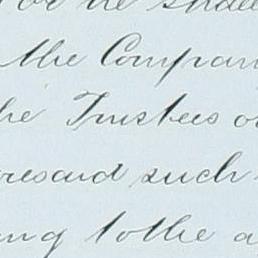 or he shall
the Compan
he Trustees o
resaid such
ing to the a